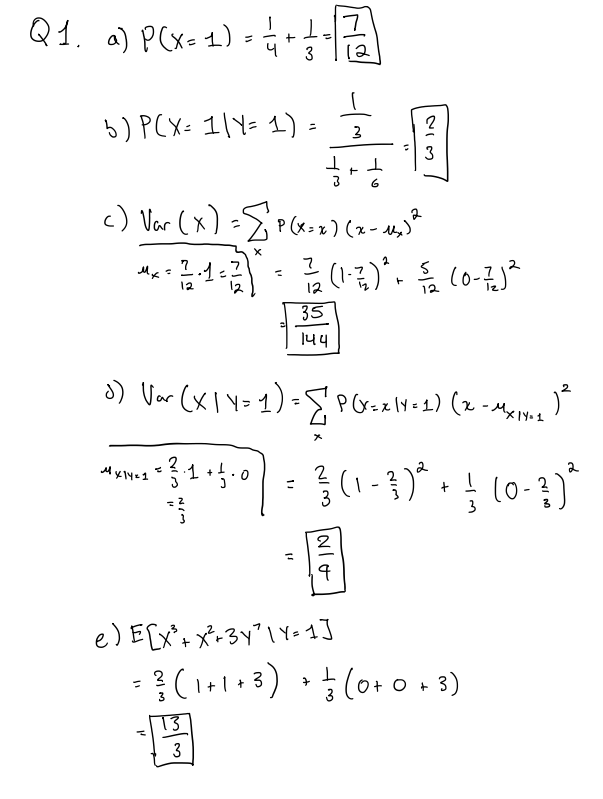 Q1. a) P(X=1) = 1/4 + 1/3 = 7/12
b) P(X=1|Y=1) = (1/3)/(1/3 + 1/6) = 2/3
c) Var(X) = Σ_x P(X=x)(x-μ_x)²
μ_x = 7/12·1 = 7/12
= 7/12 (1-7/12)² + 5/12 (0-7/12)²
= 35/144
d) Var(X|Y=1) = Σ_x P(X=x|Y=1)(x-μ_{X|Y=1})²
μ_{X|Y=1} = 2/3·1 + 1/3·0
= 2/3
= 2/3 (1-2/3)² + 1/3 (0-2/3)²
= 2/9
e) E[X³+X²+3Y⁷|Y=1]
= 2/3 (1+1+3) + 1/3 (0+0+3)
= 13/3